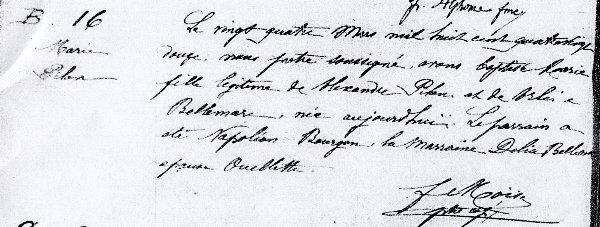 B. 16
Marie
Pilon
Le vingt quatre Mars mil huit cent quatrevingt
douze, nous prêtre soussigné, avons baptisé Marie
fille légitime de Alexandre Pilon et de
Bellemare, née aujourd'hui. Le parrain a
été Napoléon Bourgon, la Marraine Delia Bellemare
épouse Ouellette.